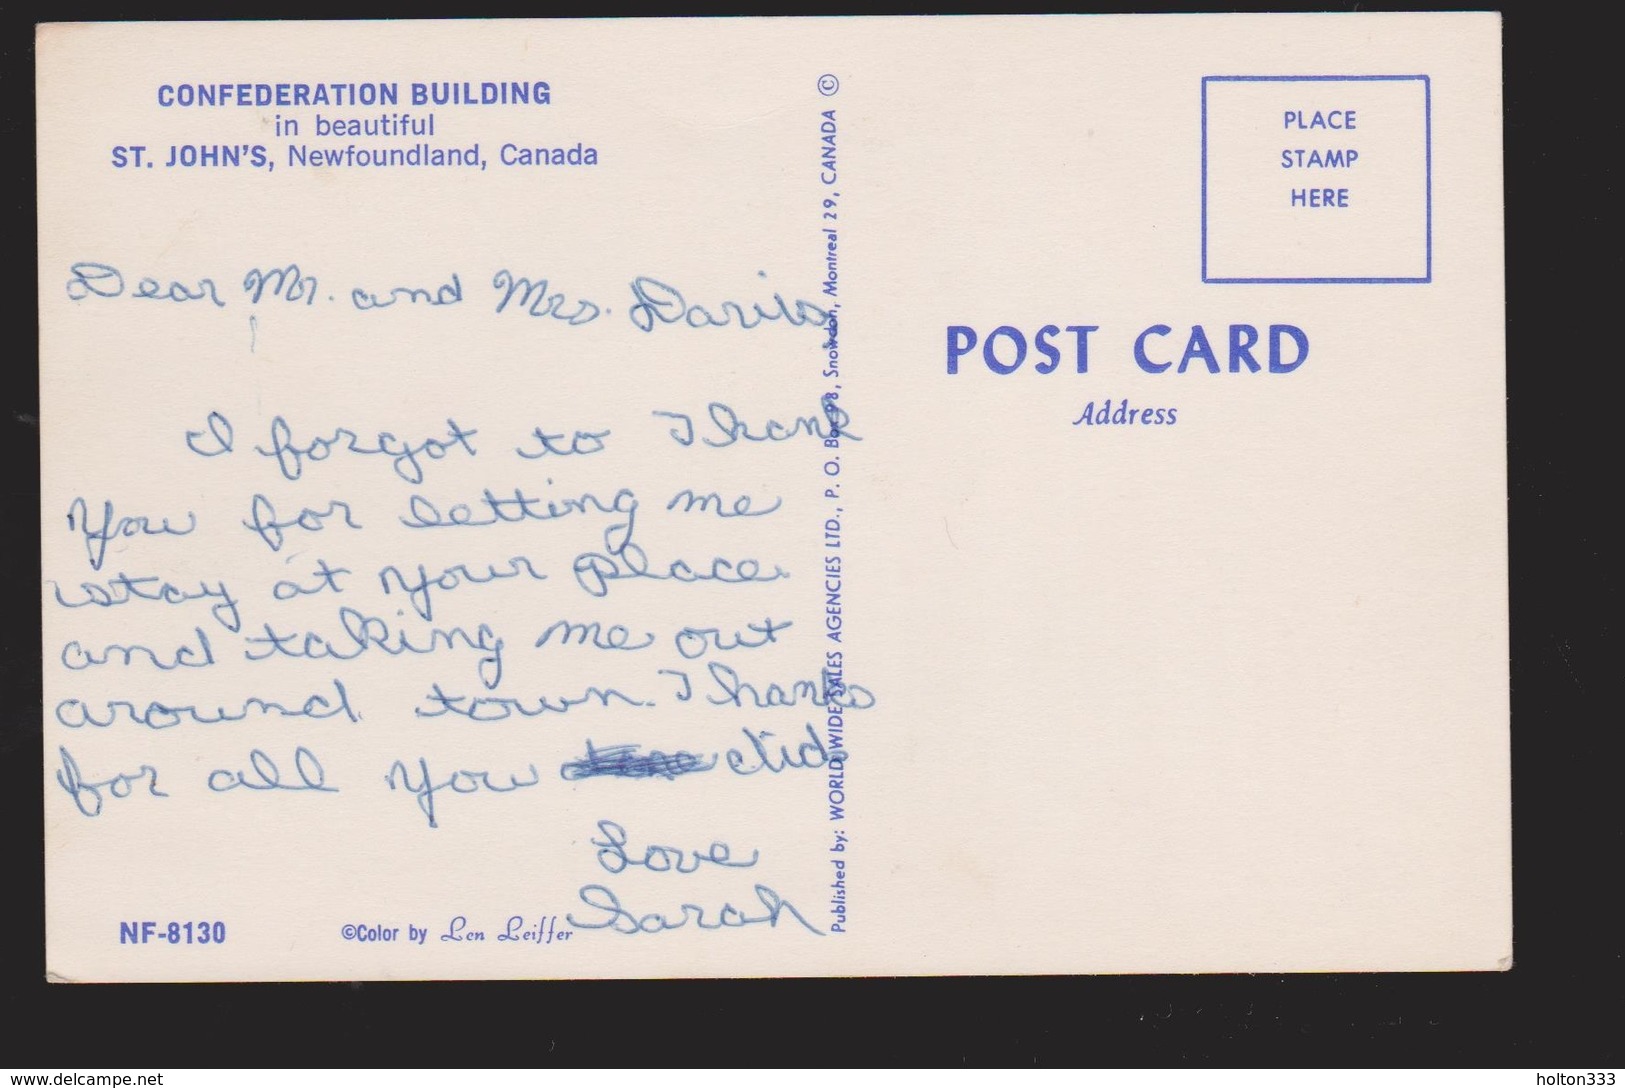 CONFEDERATION BUILDING
in beautiful
ST. JOHN'S, Newfoundland, Canada
Dear Mr. and Mrs. Davis,
I forgot to Thank
you for letting me
stay at your place
and taking me out
around town. Thanks
for all you did
Love
Sarah
NF-8130
©Color by Len Leiffer
Published by: WORLD WIDE SALES AGENCIES LTD., P. O. Box 98, Snowdon, Montreal 29, CANADA ©
PLACE
STAMP
HERE
POST CARD
Address
www.delcampe.net
holton333